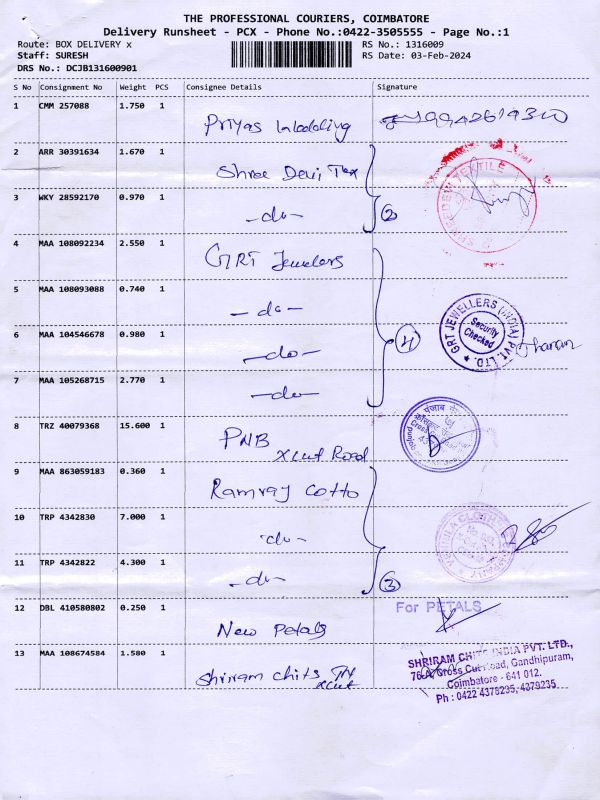 THE PROFESSIONAL COURIERS, COIMBATORE
Delivery Runsheet - PCX - Phone No.:0422-3505555 - Page No.:1
Route: BOX DELIVERY x RS No.: 1316009
Staff: SURESH RS Date: 03-Feb-2024
DRS No.: DCJB131600901
S No Consignment No Weight PCS Consignee Details Signature
1 CMM 257088 1.750 1
Priyas Wedding
2 ARR 30391634 1.670 1
Shree Devi Tex
SHREE DEVI TEXTILE
3 WKY 28592170 0.970 1
-do- 2
4 MAA 108092234 2.550 1
GRT Jewelers
5 MAA 108093088 0.740 1
-do-
GRT JEWELLERS (INDIA) PVT. LTD.
Security Checked
6 MAA 104546678 0.980 1
-do- 4 Jharan
7 MAA 105268715 2.770 1
-do-
8 TRZ 40079368 15.600 1
PNB
xcut Road
9 MAA 863059183 0.360 1
Ramraj Cotto
10 TRP 4342830 7.000 1
-do-
11 TRP 4342822 4.300 1
-do- 3
12 DBL 410580802 0.250 1
For PETALS
New Petals
13 MAA 108674584 1.580 1
Shriram chits TN
xcut
SHRIRAM CHITS INDIA PVT. LTD.,
Cross Cut Road, Gandhipuram,
Coimbatore - 641 012.
Ph : 0422 4378235, 4379235